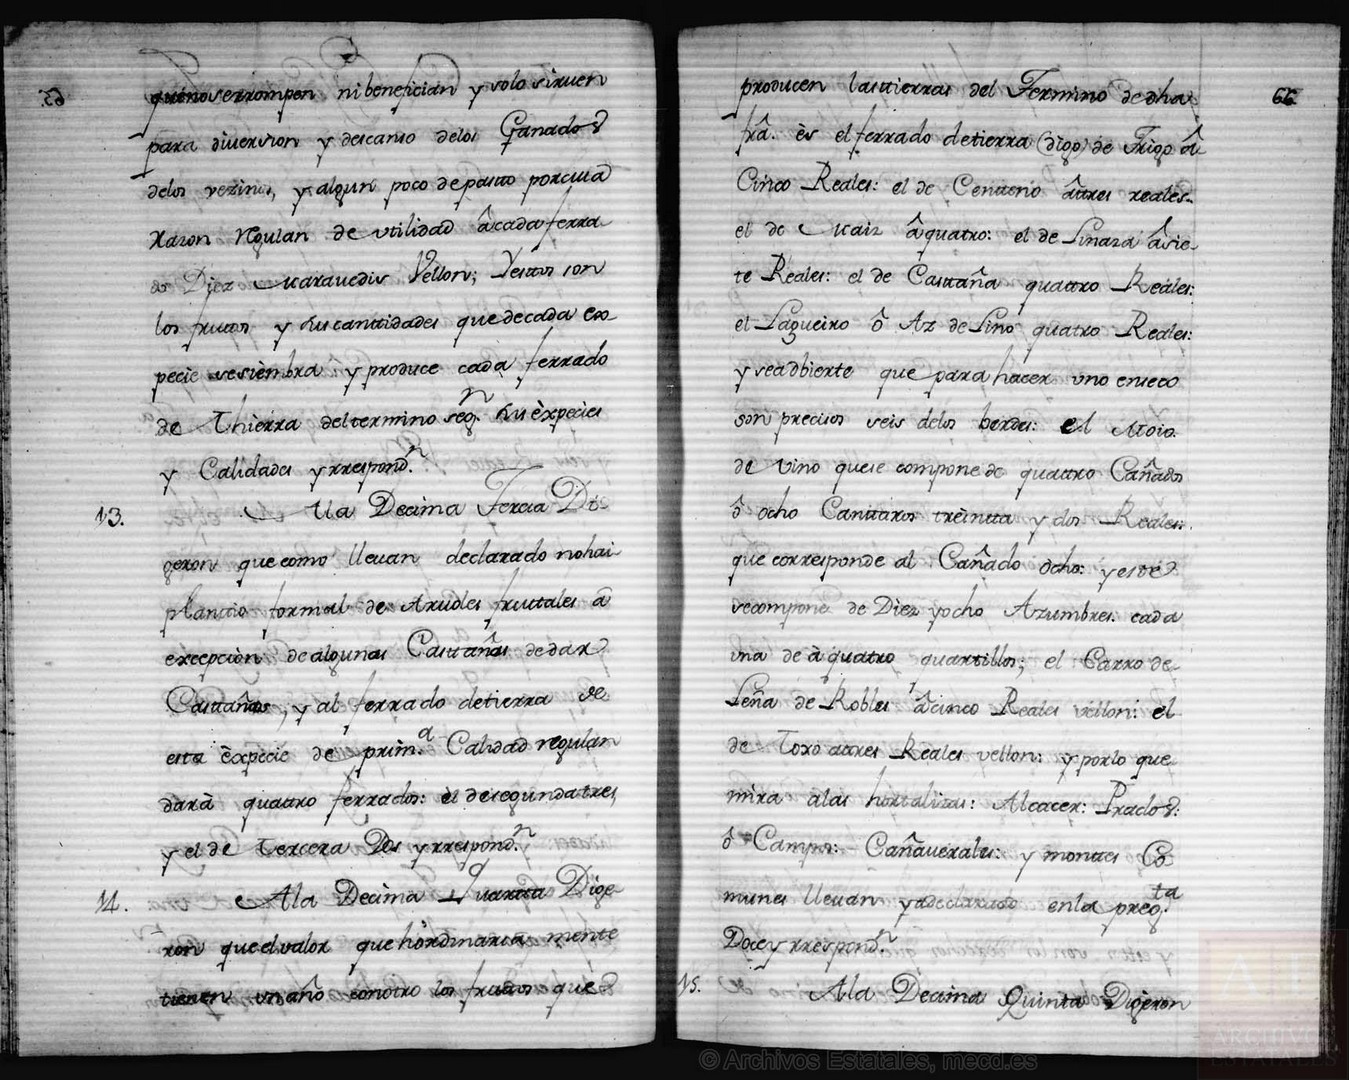 65
que no se rrompen ni benefician y solo siruen
para diuersion y descanso delos Ganados
delos vezinos, y algun poco de pasto por cuia
Razon regulan de vtilidad â cada ferra
do Diez Marauedis Vellon; Yestos son
los frutos y sus cantidades que de cada es-
pecie se siembra y produce cada ferrado
de Thierra del termino seg.n sus èxpecies
y Calidades y rrespond.n
13. Ala Decima Tercia Di-
geron que como lleuan declarado no hai
plantio formal de Aruoles frutales â
excepciòn de algunas Castañas de dar
Castañas, y al ferrado de tierra de
esta èxpecie de prim.a Calidad regulan
darà quatro ferrados: èl de segunda tres,
y el de Tercera Dos y rrespond.n
14. Ala Decima Quarta Dige-
ron que el valor que hòrdinaria mente
tienen un año con otro los frutos que
66
producen las tierras del Termino de dha
frâ. ès el ferrado de tierra (digo) de Trigo â
Cinco Reales: el de Centeno âttres reales-
el de Maiz â quatro: el de Linaza â sie-
te Reales: el de Castaña quattro Reales:
el Lagueiro ô Az de Lino quatro Reales:
y se adbierte que para hacer vno enseco
son precisos seis delos berdes: el Moio
de vino que se compone de quattro Cañados
ô ocho Canttaros trèintta y dos Reales:
que corresponde al Cañado ocho: y este
se compone de Diez y ocho Azumbres cada
vna de à quatro quartillos; el Carro de
Leña de Robles â cinco Reales vellon: el
de Toxo a tres Reales vellon: y por lo que
mira alas hortalizas: Alcacer: Prados:
ô Campos: Cañauerales: y montes Co
munes lleuan ya declarado en la preg.ta
Doce y rrespond.n
15. Ala Decima Quinta Digeron
© Archivos Estatales, mecd.es
ARCHIVOS
ESTATALES